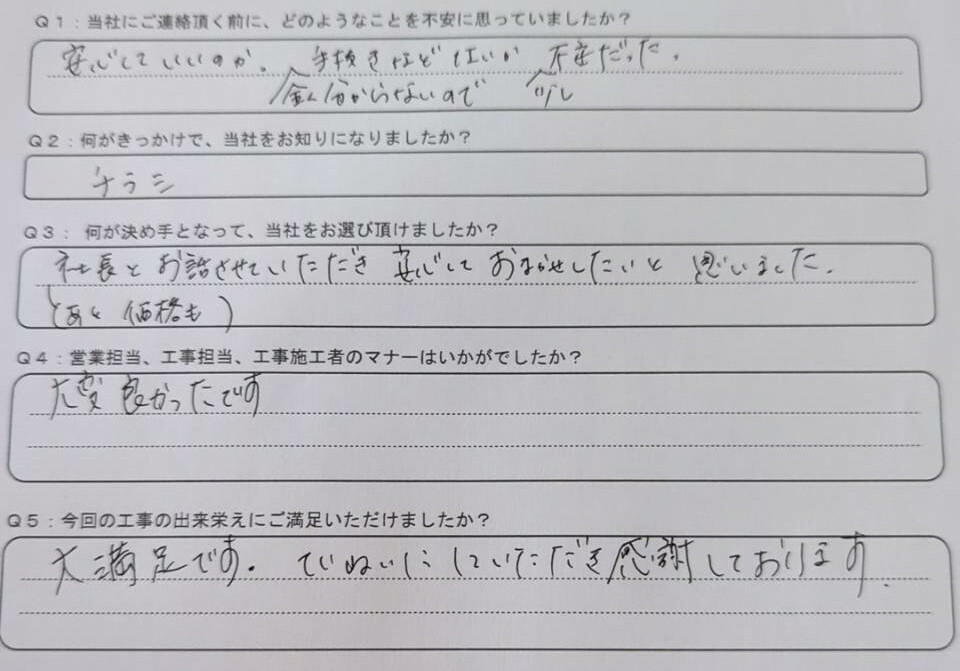 Q1：当社にご連絡頂く前に、どのようなことを不安に思っていましたか？
安心していいのか、手抜きなど
不安だった。
分からないので 少し
Q2：何がきっかけで、当社をお知りになりましたか？
チラシ
Q3： 何が決め手となって、当社をお選び頂けましたか？
社長とお話させていただき 安心して おまかせしたいと 思いました。
(あと 価格も)
Q4：営業担当、工事担当、工事施工者のマナーはいかがでしたか？
大変良かったです
Q5：今回の工事の出来栄えにご満足いただけましたか？
大満足です。 ていねいにしていただき感謝しております.